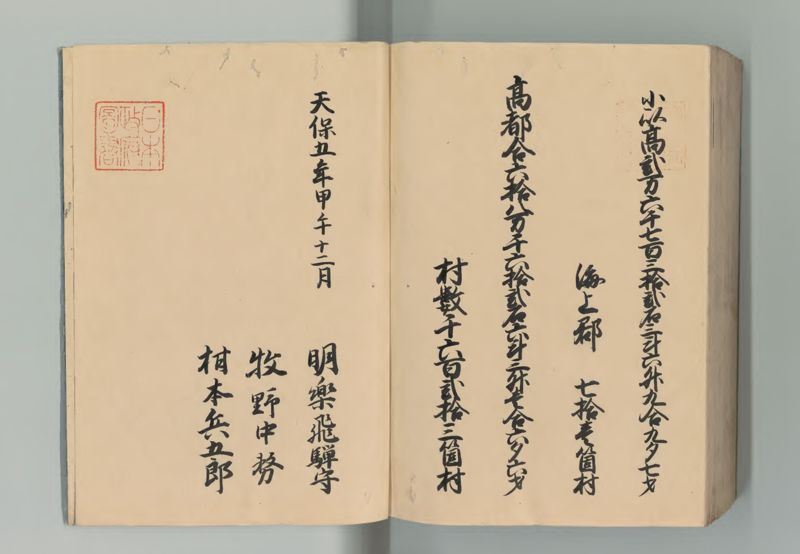 小以高弐万六千七百三拾弐石三斗六升九合九夕七才
海上郡 七拾壱箇村
高都合六拾八万千六拾弐石六斗三升壱合六夕六才
村数千六百弐拾三箇村
天保五年甲午十二月
明楽飛騨守
牧野中務
柑本兵五郎
日本
政府
図書